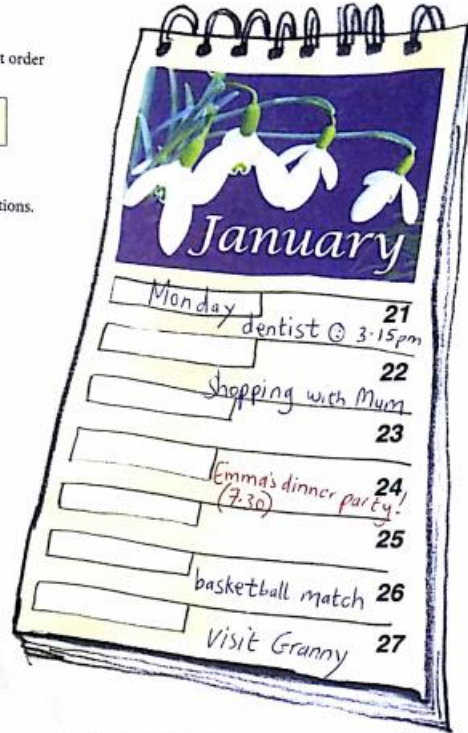 t order
tions.
January
Monday
21
dentist @ 3.15pm
22
shopping with Mum
23
Emma's dinner party!
24
(7.30)
25
basketball match 26
Visit Granny 27